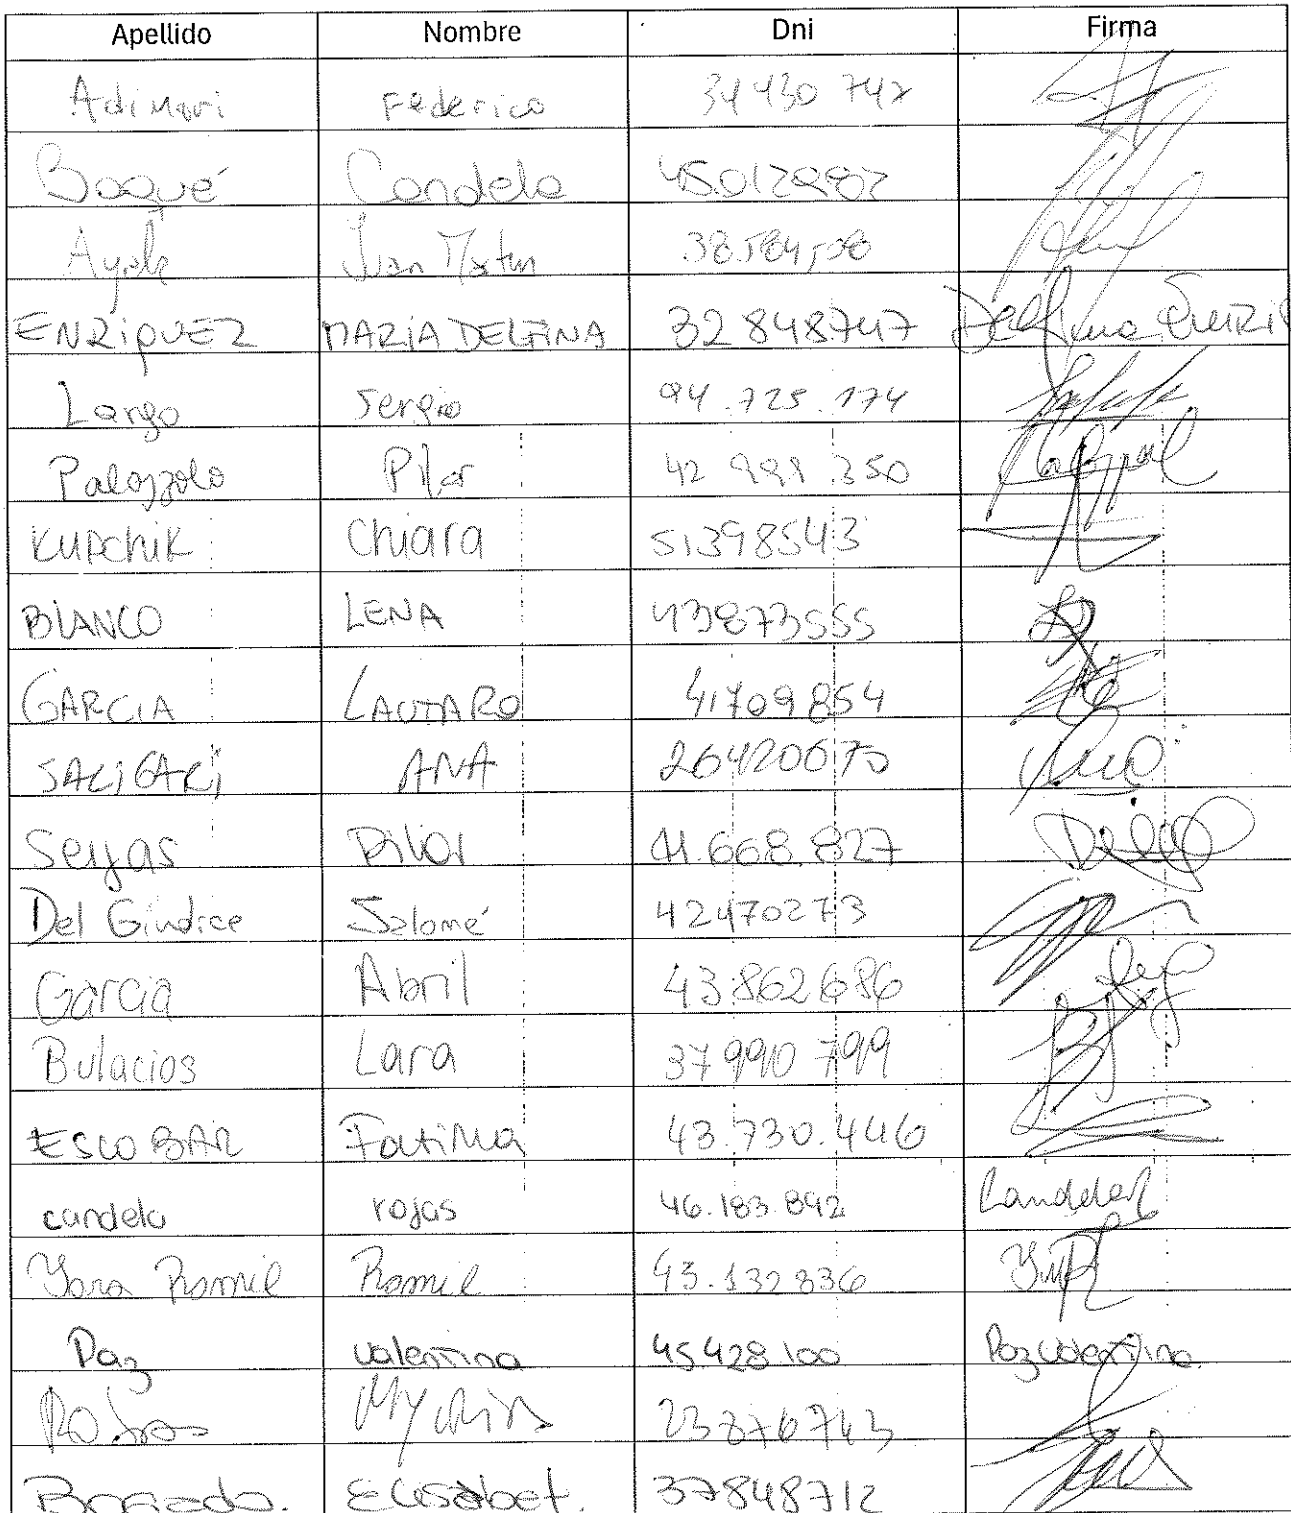 Apellido Nombre Dni Firma
Adimari Federico 34 430 742
Boqué Candela 45.012982
Ayala Juan Martin
ENRIQUEZ MARIA DELFINA 32 848747 Delfina Enriq
Largo Sergio 94.725.174
Palazzolo Pilar 42 999.350
KUPChiK Chiara 51398543
BLANCO LENA 43873555
GARCIA LAUTARO 41709854
SALIGARI ANA 26420675
Seijas Pilar 41.668.827
Del Giudice Salomé 42470273
Garcia Abril 43.862686
Bulacios Lara 37 990 799
ESCOBAR Fatima 43.730.446
candela rojas 46.183.892 Candela
Yara Romil Romil 43.132836
Paz Valentina 45.428.100 Paz Valentina
Rojas 23876743
Elisabet. 37848712